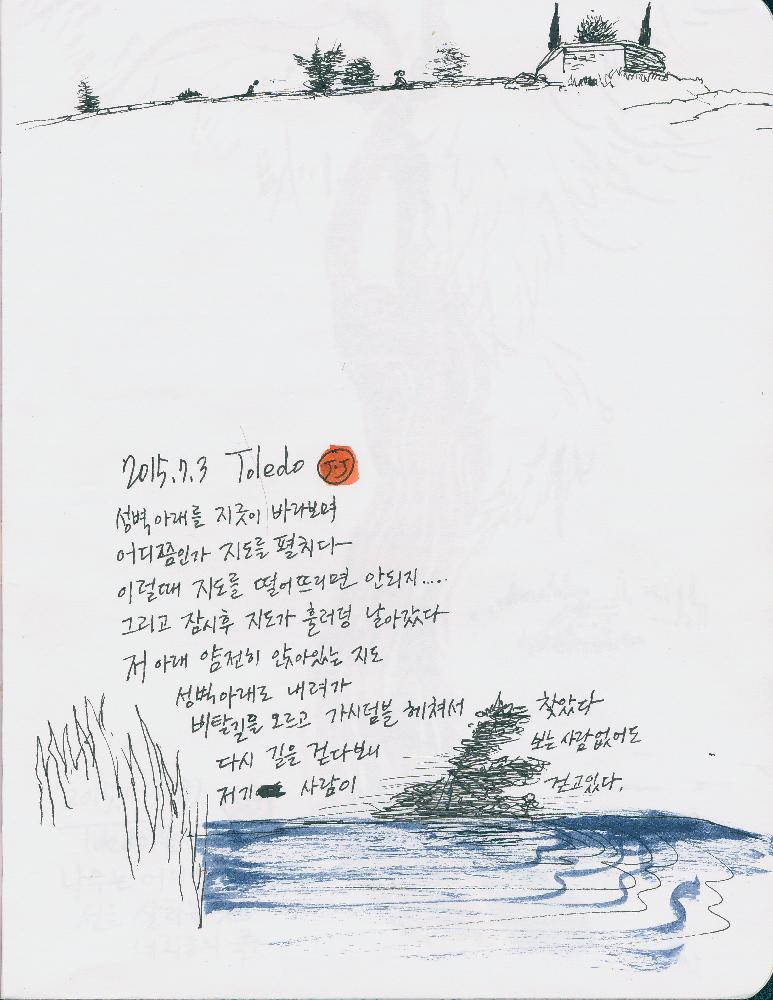 2015.7.3 Toledo J.J
성벽아래를 지긋이 바라보며
어디쯤인가 지도를 펼치다
이럴때 지도를 떨어뜨리면 안되지.....
그리고 잠시후 지도가 훌러덩 날아갔다
저 아래 얌전히 앉아있는 지도
성벽아래로 내려가
비탈길을 오르고 가시덤블 헤쳐서 찾았다
다시 길을 걷다보니 보는 사람없어도
저기 사람이 걷고있다.